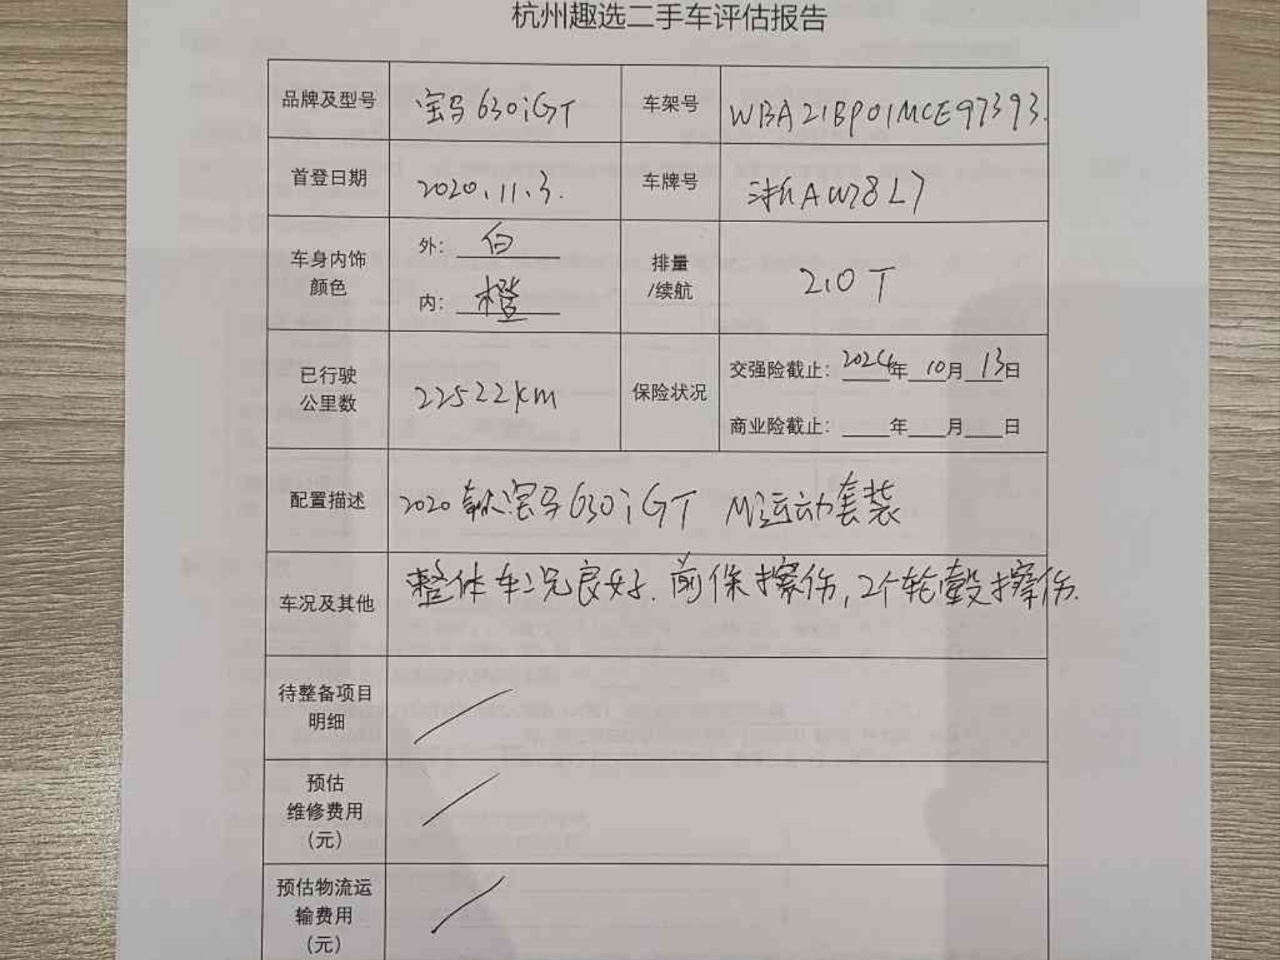 杭州趣选二手车评估报告
品牌及型号 宝马630iGT 车架号 WBA21BP01MCE97393.
首登日期 2020.11.3. 车牌号 浙AW78L7
车身内饰
颜色
外: 白
内: 橙
排量
/续航
2.0T
已行驶
公里数
22522km
保险状况
交强险截止: 2024年10月13日
商业险截止: ____年____月____日
配置描述 2020款宝马630iGT M运动套装
车况及其他 整体车况良好.前保擦伤,2个轮毂擦伤.
待整备项目
明细
预估
维修费用
(元)
预估物流运
输费用
(元)